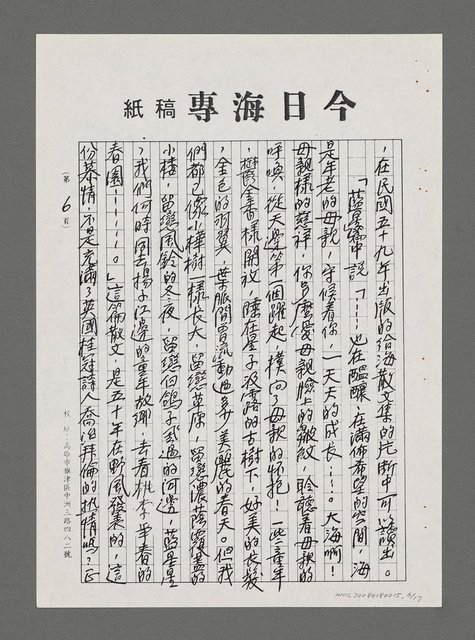 今日海專稿紙
，在民國五十九年出版的給海散文集的片斷中可以讀出。
「藍星 中說「……也在醞釀，在滿佈希望的空間，海
是年老的母親，守候看你一天天的成長……。大海啊！
母親樣的慈祥，你多麼愛母親臉上的皺紋，聆聽着母親的
呼喚，從天邊第一個躍起，撲向了母親的怀抱！一些童年
，鬱金香樣開放，睡在星子 露的古樹下，好美的長髮
，金色的羽翼，葉脈間曾流動過多少美麗的春天。但我
們都已像小樺樹一樣長大，留戀草原，留戀濃蔭覆蓋的
小樓，留戀風鈴的冬夜，留戀白鴿子飛過的河邊，藍星星
，我們何時回去揚子江邊的童年故鄉，去看桃李爭春的
春園……。」這篇散文，是五十年在野風發表的，這
份慕情，不是充滿了英國桂冠詩人喬治拜倫的热情嗎？正
校址：高雄市旗津區中洲三路四八二號
（第 6 頁）
HMLC20080180015, 6/17